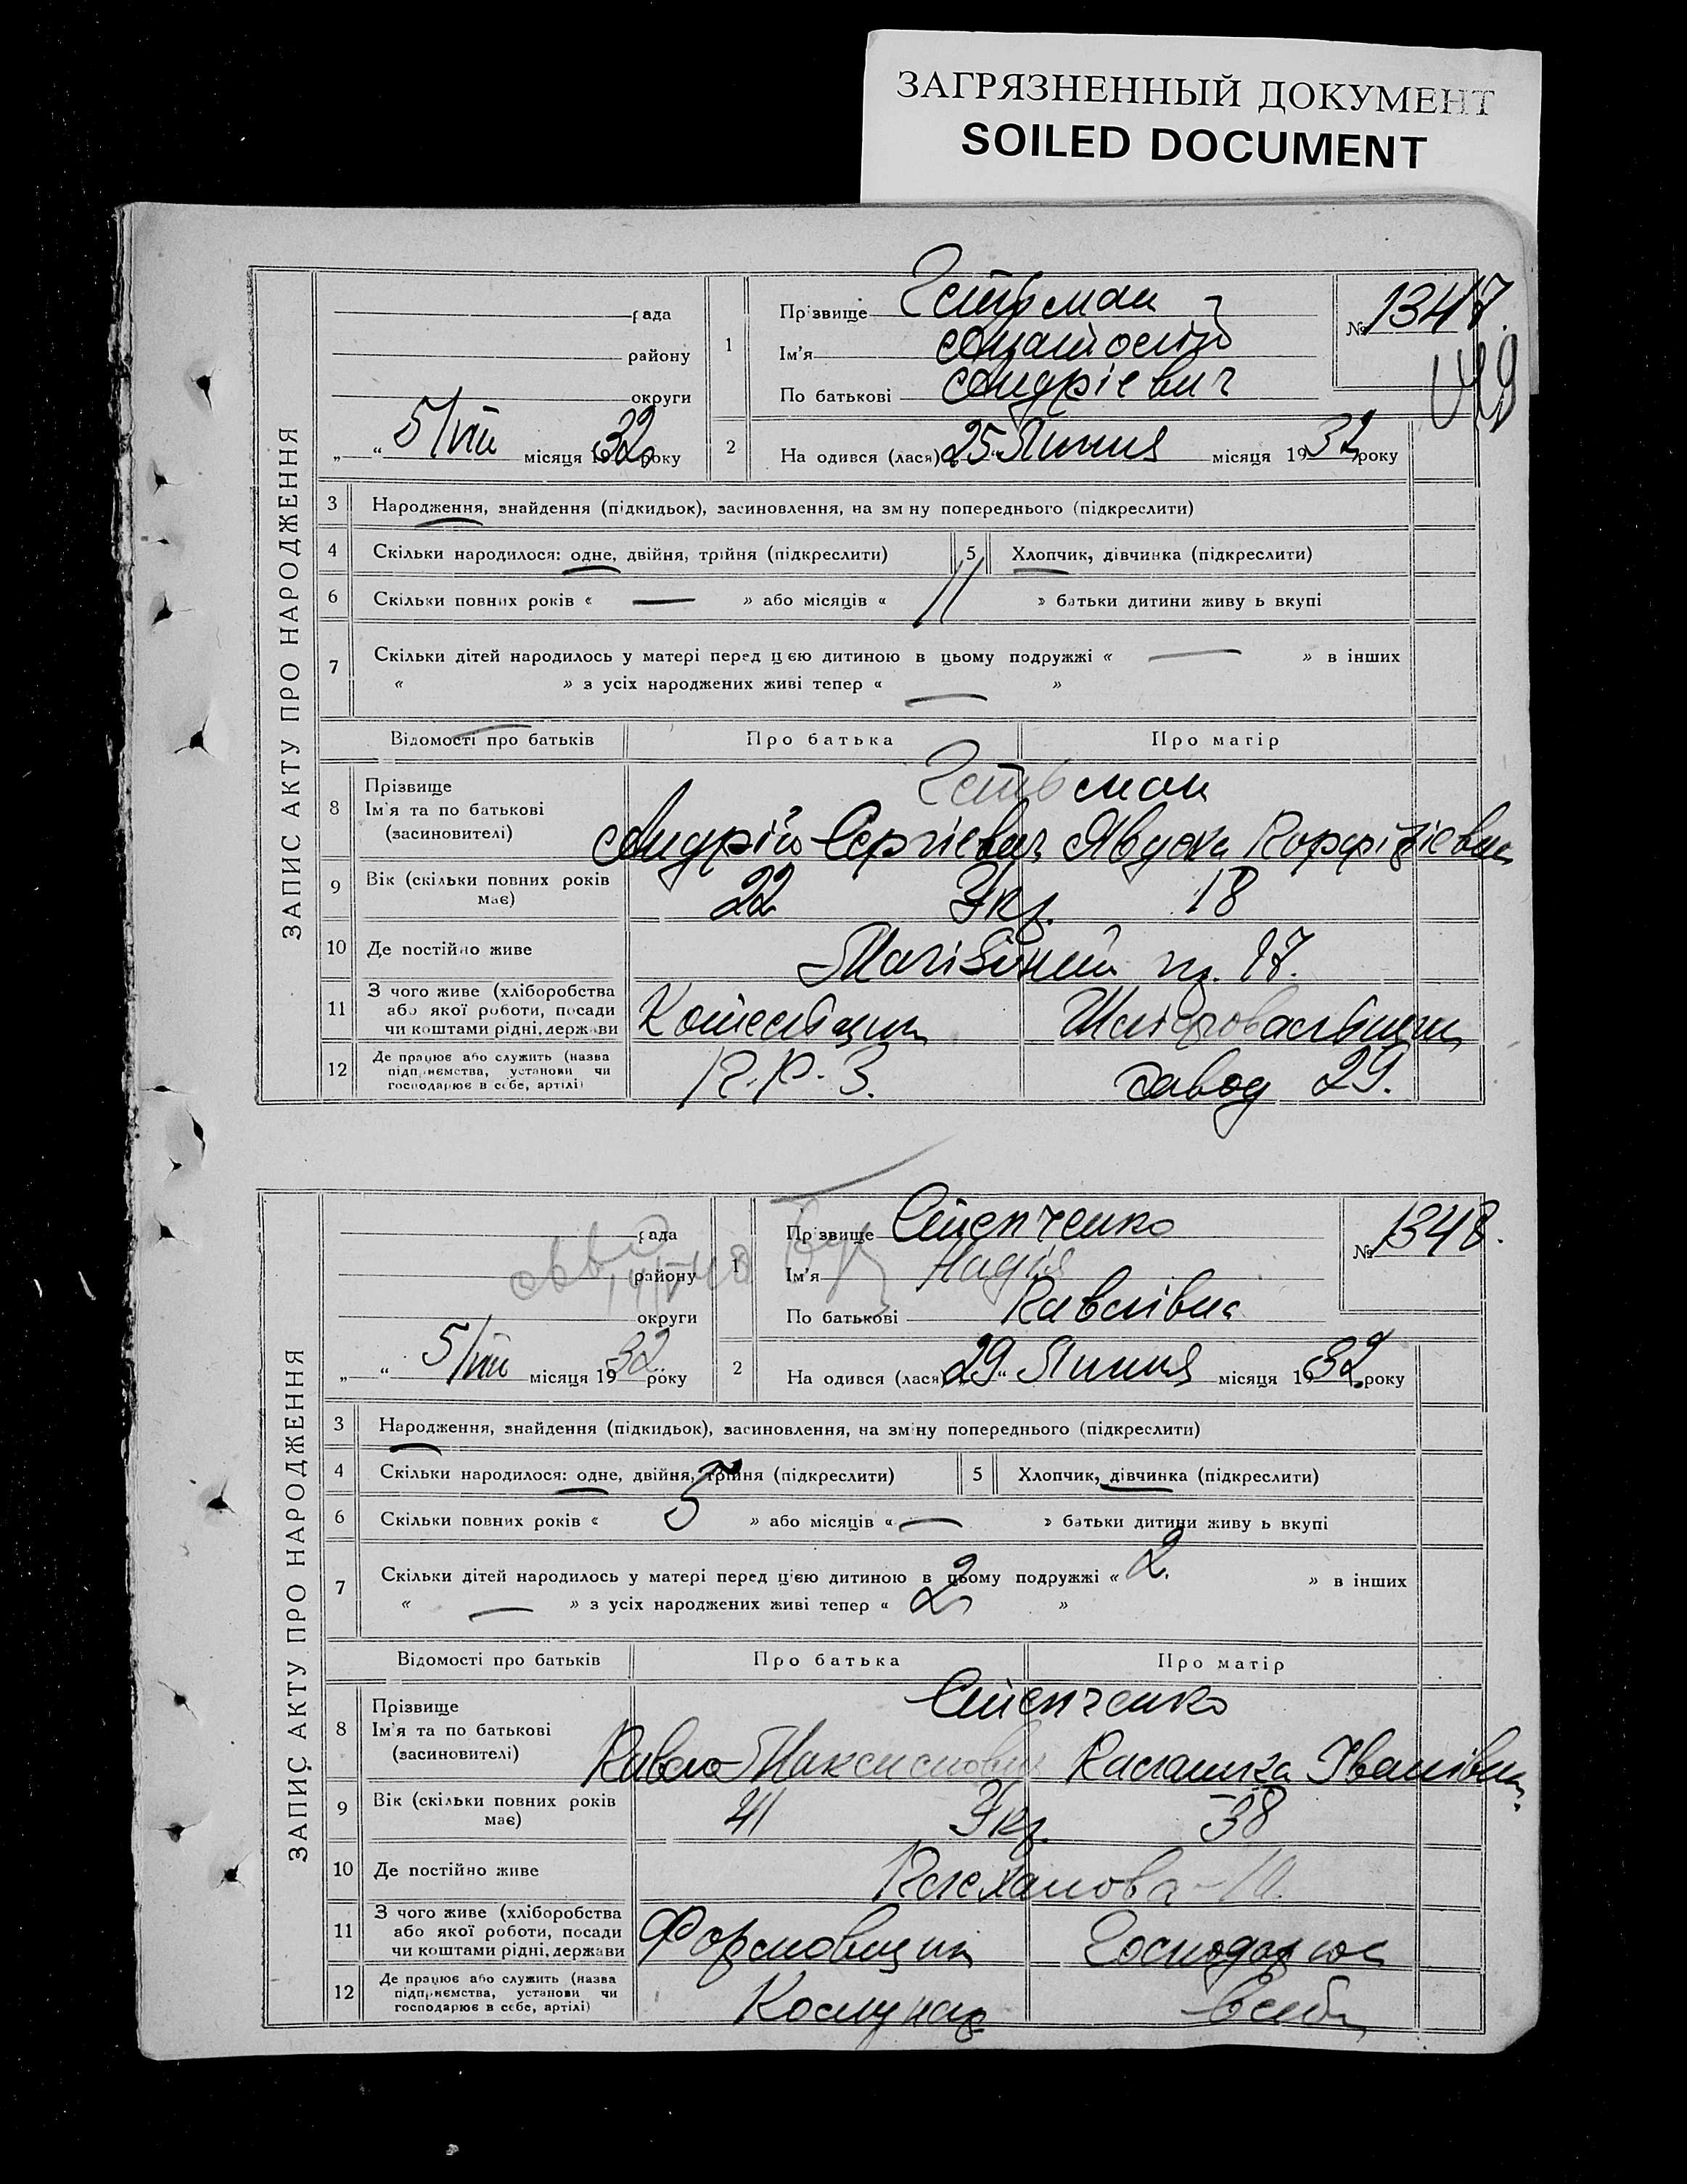 ЗАГРЯЗНЕННЫЙ ДОКУМЕНТ
SOILED DOCUMENT
ЗАПИС АКТУ ПРО НАРОДЖЕННЯ
рада
району
округи
„ “ 5/VIII місяця 1932 року
1
Прізвище Гетьман
Ім'я
По батькові Андрієвич
№ 1347.
2
На одився (лася) 25 „Липня місяця 1932 року
3 Народження, знайдення (підкидьок), засиновлення, на зміну попереднього (підкреслити)
4 Скільки народилося: одне, двійня, трійня (підкреслити)
5 Хлопчик, дівчинка (підкреслити)
6 Скільки повних років « — » або місяців « 11 » батьки дитини живу ь вкупі
7 Скільки дітей народилось у матері перед цією дитиною в цьому подружжі « — » в інших
« » з усіх народжених живі тепер « — »
Відомості про батьків
Про батька
Про матір
8 Прізвище
Ім'я та по батькові
(засиновителі)
Гетьман
Андрій Сергієвич
9 Вік (скільки повних років
має)
22 Укр. 18
10 Де постійно живе
17.
11 З чого живе (хліборобства
або якої роботи, посади
чи коштами рідні, держави
12 Де працює або служить (назва
підприємства, установи чи
господарює в себе, артілі)
П.Р.З.
завод 29.
ЗАПИС АКТУ ПРО НАРОДЖЕННЯ
рада
району
округи
„ “ 5/VIII місяця 1932 року
1
Прізвище Степченко
Ім'я Надія
По батькові Павлівна
№ 1348.
2
На одився (лася) 29 „Липня місяця 1932 року
3 Народження, знайдення (підкидьок), засиновлення, на зміну попереднього (підкреслити)
4 Скільки народилося: одне, двійня, трійня (підкреслити)
5 Хлопчик, дівчинка (підкреслити)
6 Скільки повних років « 5 » або місяців « — » батьки дитини живу ь вкупі
7 Скільки дітей народилось у матері перед цією дитиною в цьому подружжі « 2. » в інших
« — » з усіх народжених живі тепер « 2 »
Відомості про батьків
Про батька
Про матір
8 Прізвище
Ім'я та по батькові
(засиновителі)
Степченко
Павло Максимович Іванівна
9 Вік (скільки повних років
має)
41 Укр. 38
10 Де постійно живе
Плеханова
11 З чого живе (хліборобства
або якої роботи, посади
чи коштами рідні, держави
Формовщик
Господарює
12 Де працює або служить (назва
підприємства, установи чи
господарює в себе, артілі)
Комунар
в себе